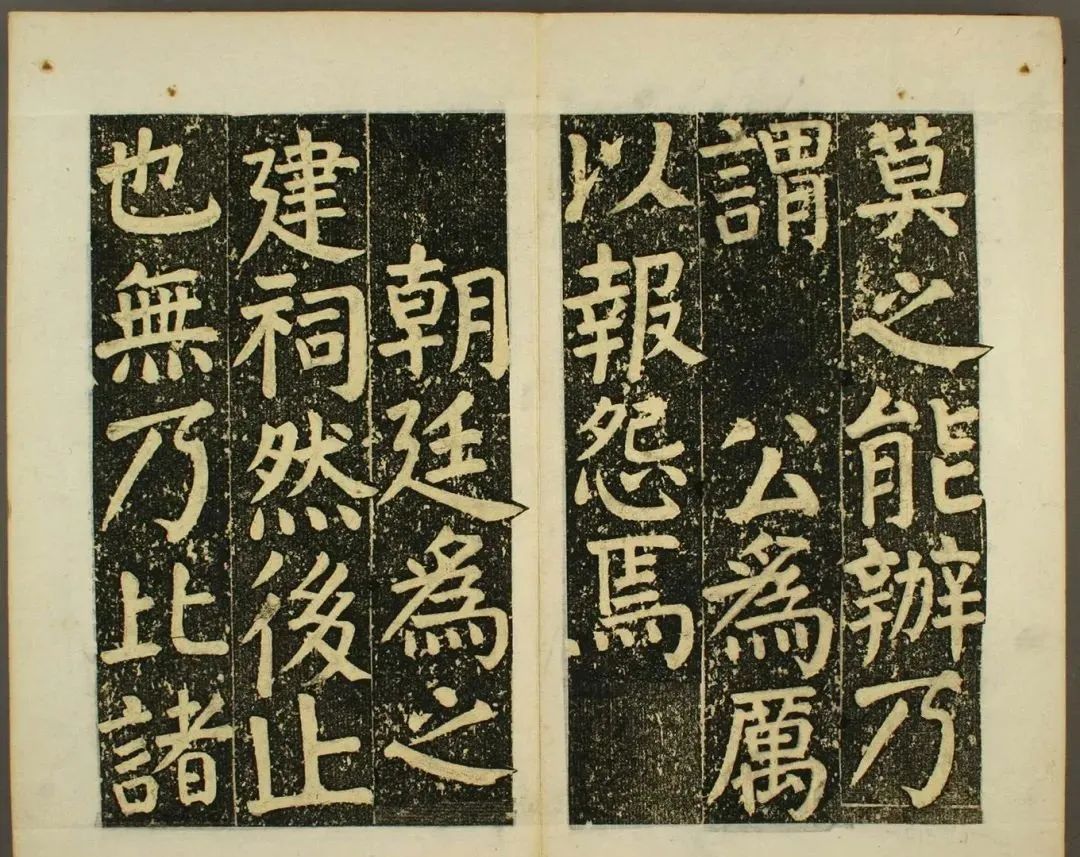 莫之能辦乃
謂公為厲
以報怨焉
朝廷為之
建祠然後止
也無乃比諸